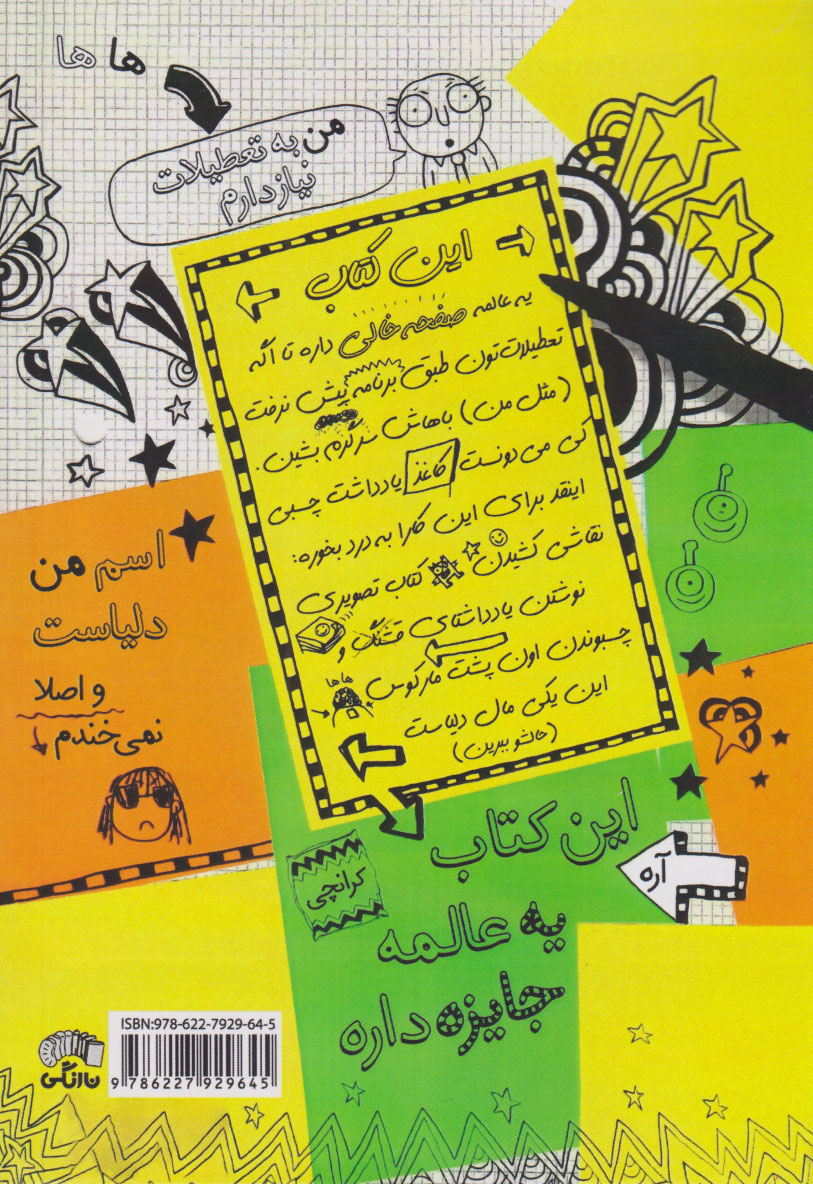 ها ها
من به تعطیلات
نیاز دارم
این کتاب
یه عالمه صفحه خالی داره تا اگه
تعطیلات‌تون طبق برنامه پیش نرفت
(مثل من) باهاش سرگرم بشین.
کی می دونست کاغذ یادداشت چسبی
اینقد برای این کارا به درد بخوره:
نقاشی کشیدن کتاب تصویری
نوشتن یادداشتای قشنگ و
چسبوندن اون پشت مارکوس
ها ها
این یکی مال دلیاست
(حالشو ببرین)
اسم من
دلیاست
و اصلا
نمی‌خندم
این کتاب
آره
کرانچی
یه عالمه
جایزه داره
ISBN:978-622-7929-64-5
9 786227 929645
نارنگی